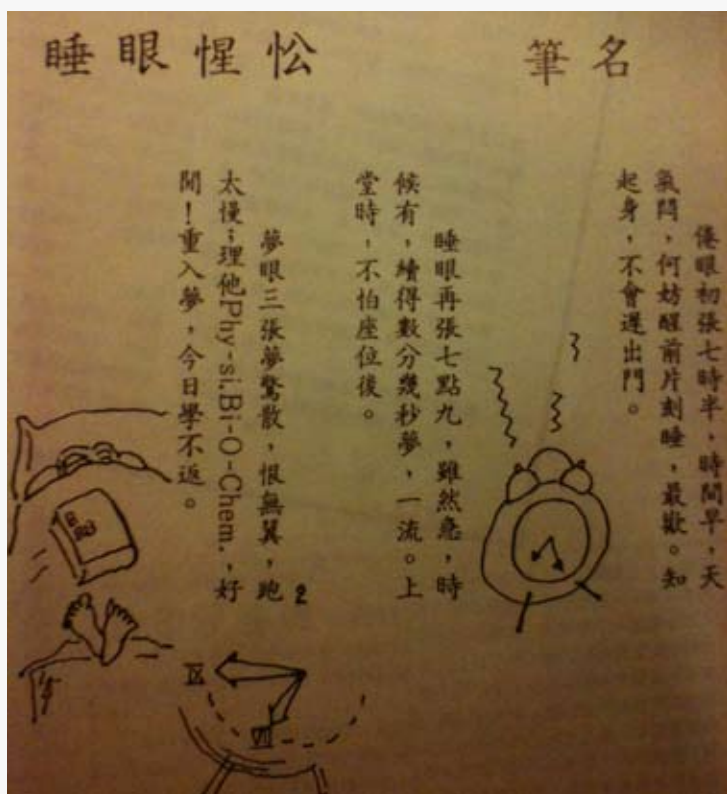 睡眼惺忪
筆名
倦眼初張七時半，時間早，天
氣悶，何妨醒前片刻睡，最歡。知
起身，不會遲出門。
睡眼再張七點九，雖然急，時
候有，續得數分幾秒夢，一流。上
堂時，不怕座位後。
夢眼三張夢驚散，恨無翼，跑
太慢；理他Phy-si.Bi-O-Chem.，好
閒！重入夢，今日學不返。
2
IX
VII